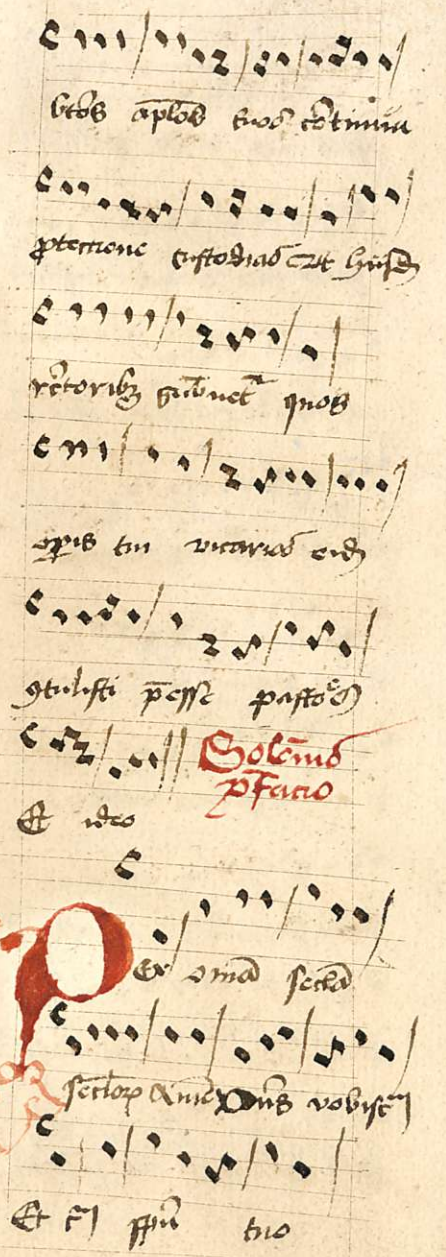 btōs apl̄os tuos cōtinua
ꝓteccione custodias Et hijsdē
rc̄toribꝫ gub̄netʳ quos
opis tui vicarios eidē
ꝯtulisti p̄esse pastoēs
Et ideo
Solēnis
p̄facio
Per om̄ia secl̄a
secloꝝ Amē Dn̄s vobiscū
Et cū spū tuo